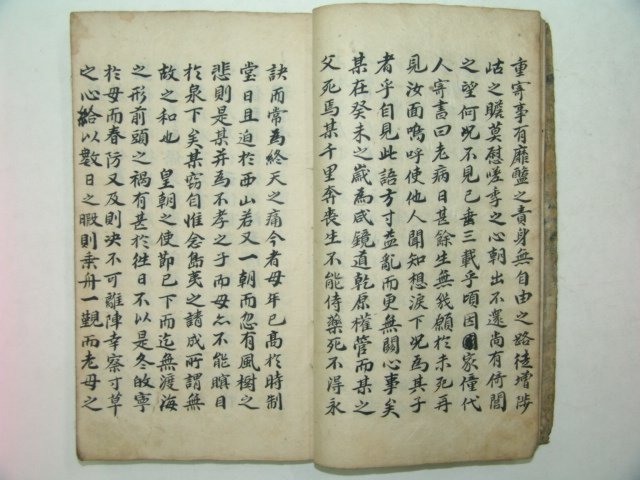 重寄事有靡盬之責身無自由之路徒增陟
岵之瞻莫慰嗟季之心朝出不還尚有倚閭
之望何况不見已垂三載乎頃因家僮代
人寄書曰老病日甚餘生無幾願於未死再
見汝面嗚呼使他人聞知想淚下况爲其子
者乎自見此語方寸益亂而更無關心事矣
某在癸未之歲爲咸鏡道乾原權管而某之
父死焉某千里奔喪生不能侍藥死不得永
訣而常爲終天之痛今者母年已高於時制
堂日且迫於西山若又一朝而忽有風樹之
悲則是某并爲不孝之子而母亦不能瞑目
於泉下矣某竊自惟念島夷之請成所謂無
故之和也 皇朝之使節已下而迄無渡海
之形前頭之禍有甚於往日不以是冬故寧
於母而春防又及則决不可離陣幸察寸草
之心給以數日之暇則乘舟一覲而老母之